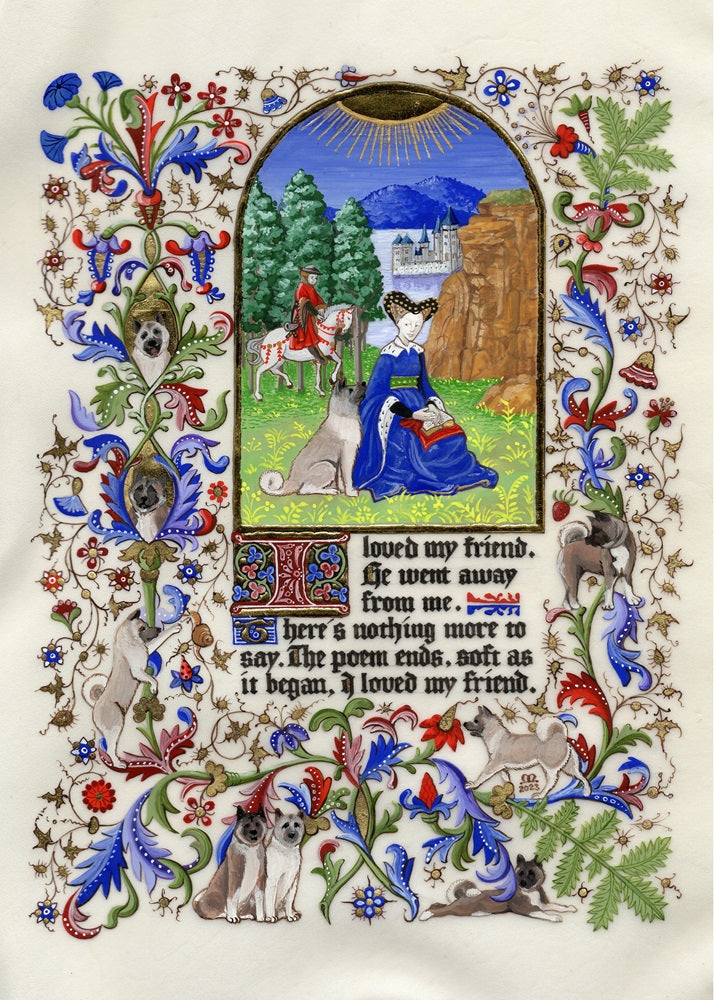 I loved my friend.
He went away
from me.
There's nothing more to
say. The poem ends, soft as
it began, I loved my friend.
2023